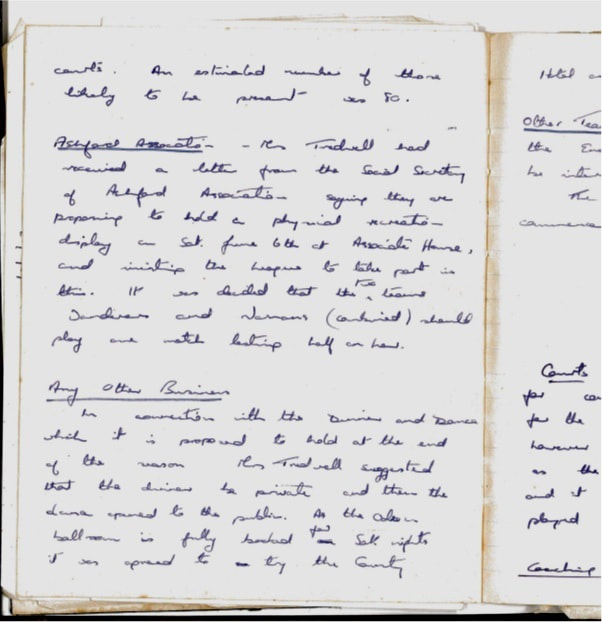 courts. An estimated number of those
likely to be present was 80.
Ashford Association - Mrs Tredwell had
received a letter from the Social Secretary
of Ashford Association saying they are
proposing to hold a physical recreation
display on Sat. June 6th at Associate House,
and inviting the league to take part in
this. It was decided that the two teams
and (combined) should
play one match lasting half an hour.
Any Other Business
In connection with the Dinner and Dance
which it is proposed to hold at the end
of the season Mrs Tredwell suggested
that the dinner be private and then the
dance opened to the public. As the
ballroom is fully booked for Sat. nights
it was agreed to try the County
Hotel
Other
the
be
The
Courts
for
for the
however
as the
and it
played
Coaching